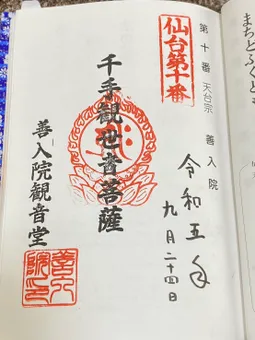 第十番 天台宗 善入院
仙台第十番
令和五年
九月二十四日
千手観世音菩薩
善入院観音堂
善入院印
まちとふくと